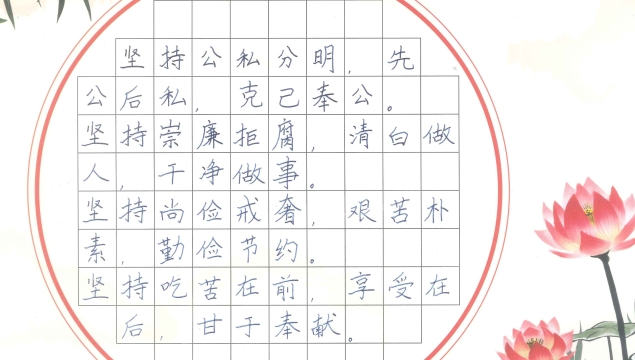 坚持公私分明，先
公后私，克己奉公。
坚持崇廉拒腐，清白做
人，干净做事。
坚持尚俭戒奢，艰苦朴
素，勤俭节约。
坚持吃苦在前，享受在
后，甘于奉献。